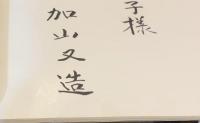 子様
加山又造